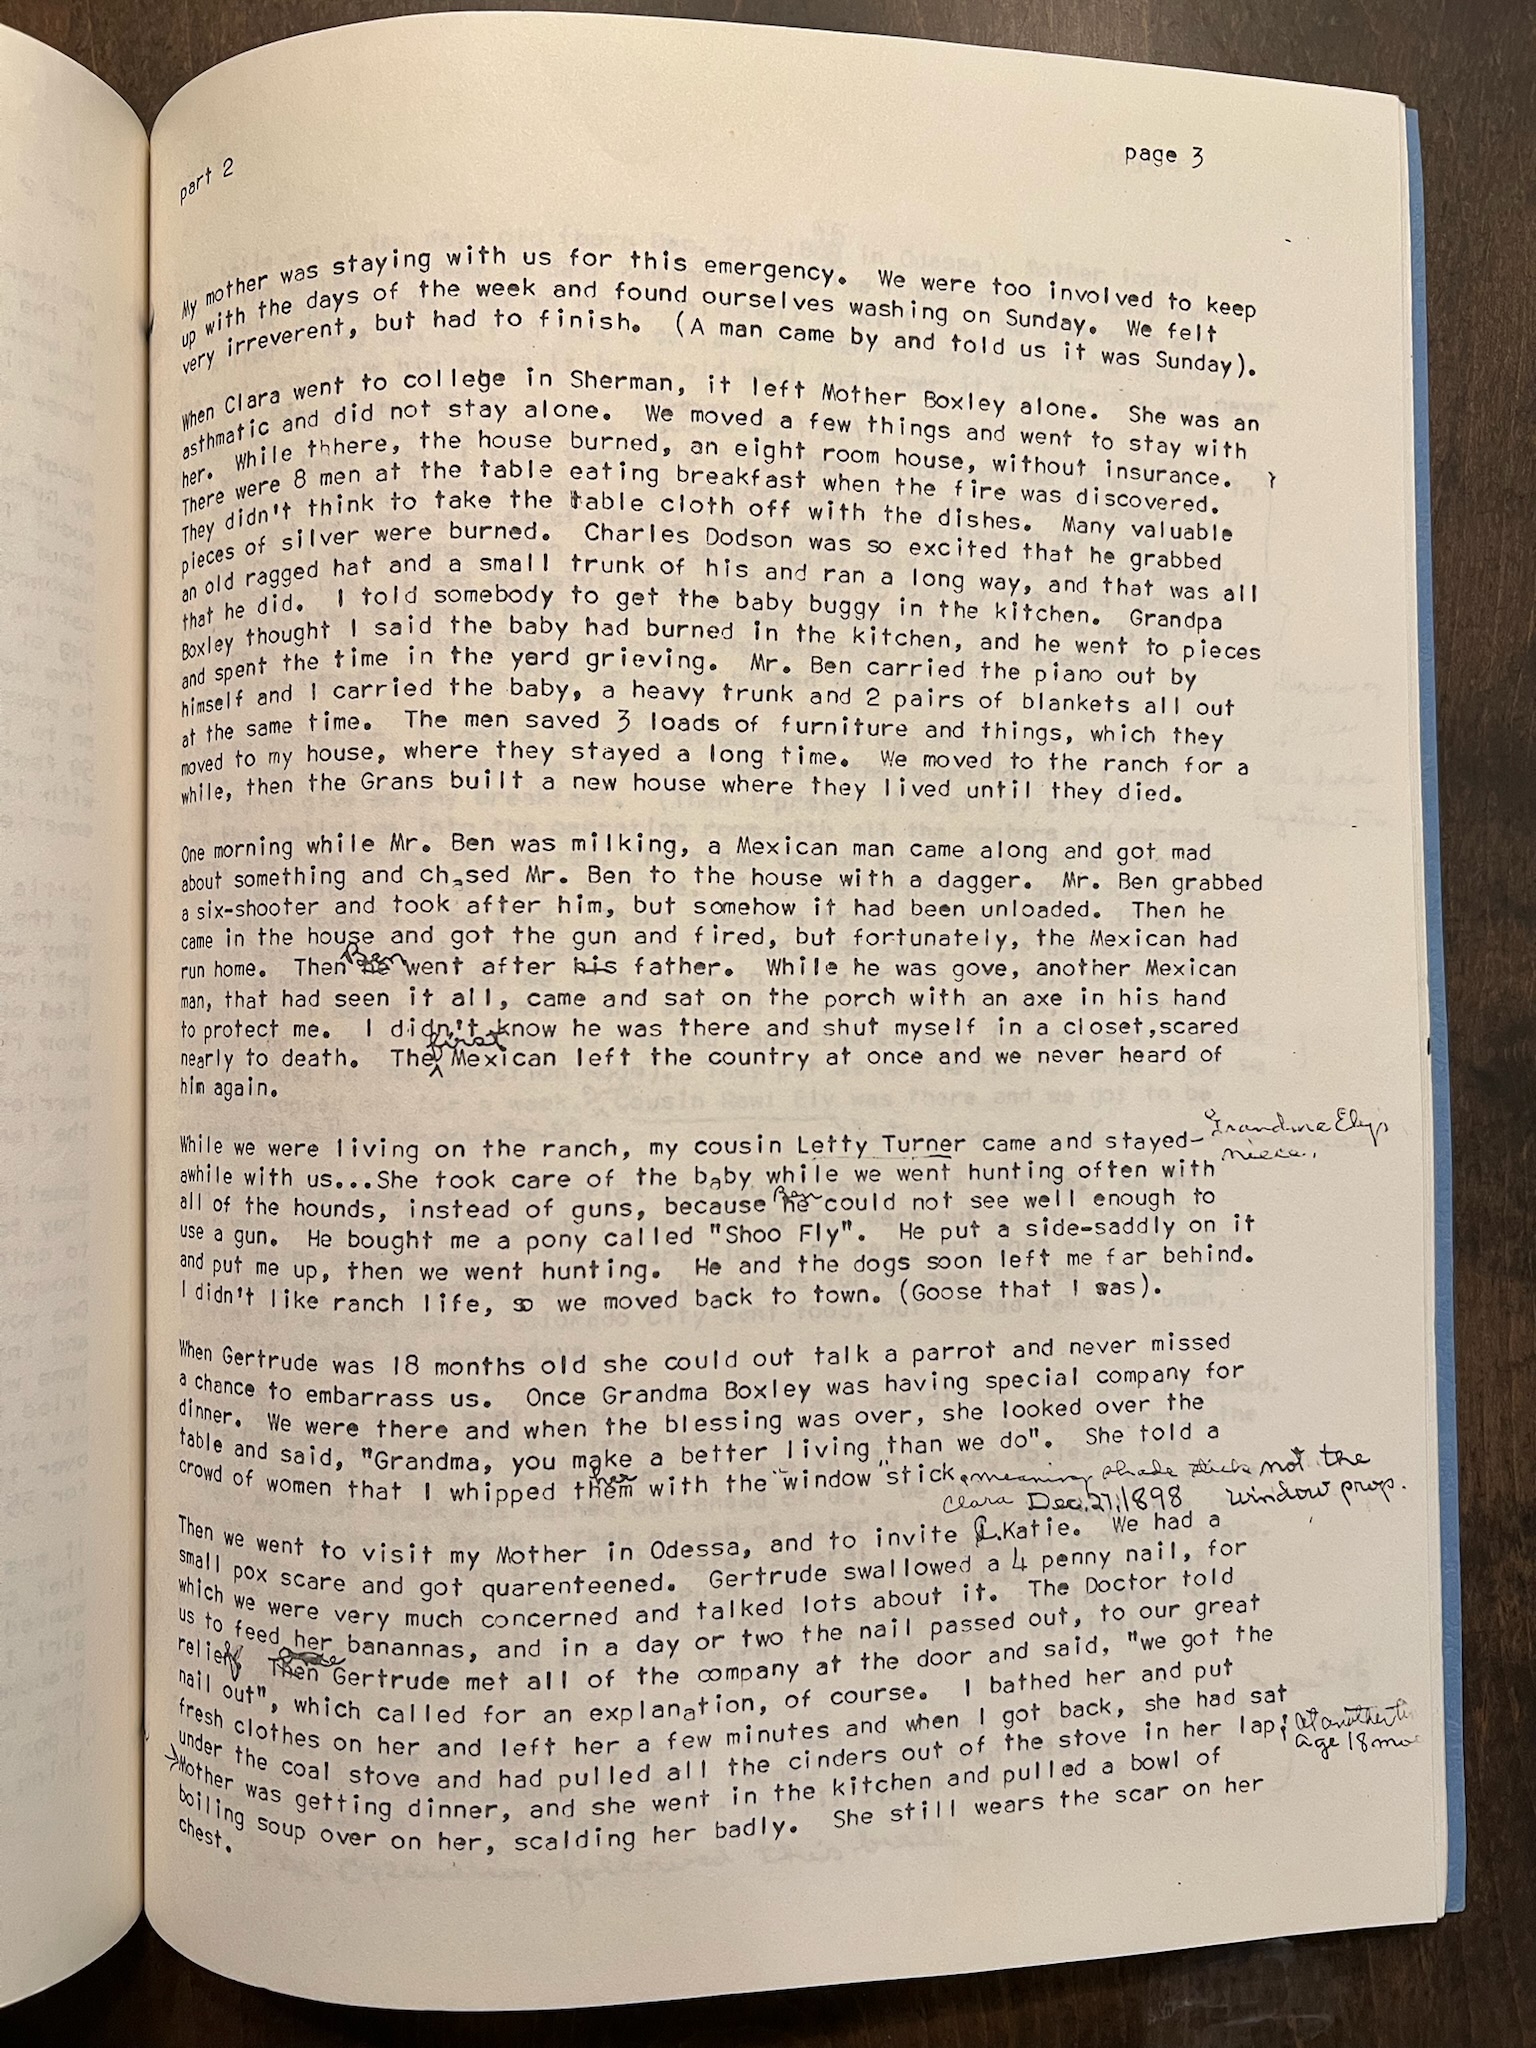 part 2
page 3
My mother was staying with us for this emergency. We were too involved to keep
up with the days of the week and found ourselves washing on Sunday. We felt
very irreverent, but had to finish. (A man came by and told us it was Sunday).
When Clara went to college in Sherman, it left Mother Boxley alone. She was an
asthmatic and did not stay alone. We moved a few things and went to stay with
her. While thhere, the house burned, an eight room house, without insurance.
There were 8 men at the table eating breakfast when the fire was discovered.
They didn't think to take the table cloth off with the dishes. Many valuable
pieces of silver were burned. Charles Dodson was so excited that he grabbed
an old ragged hat and a small trunk of his and ran a long way, and that was all
that he did. I told somebody to get the baby buggy in the kitchen. Grandpa
Boxley thought I said the baby had burned in the kitchen, and he went to pieces
and spent the time in the yard grieving. Mr. Ben carried the piano out by
himself and I carried the baby, a heavy trunk and 2 pairs of blankets all out
at the same time. The men saved 3 loads of furniture and things, which they
moved to my house, where they stayed a long time. We moved to the ranch for a
while, then the Grans built a new house where they lived until they died.
One morning while Mr. Ben was milking, a Mexican man came along and got mad
about something and chased Mr. Ben to the house with a dagger. Mr. Ben grabbed
a six-shooter and took after him, but somehow it had been unloaded. Then he
came in the house and got the gun and fired, but fortunately, the Mexican had
run home. Then he Ben went after his father. While he was gove, another Mexican
man, that had seen it all, came and sat on the porch with an axe in his hand
to protect me. I didn't know he was there and shut myself in a closet,scared
nearly to death. The first Mexican left the country at once and we never heard of
him again.
While we were living on the ranch, my cousin Letty Turner came and stayed- Grandma Ely's
niece.
awhile with us...She took care of the baby while we went hunting often with
all of the hounds, instead of guns, because he Ben could not see well enough to
use a gun. He bought me a pony called "Shoo Fly". He put a side-saddly on it
and put me up, then we went hunting. He and the dogs soon left me far behind.
I didn't like ranch life, so we moved back to town. (Goose that I was).
When Gertrude was 18 months old she could out talk a parrot and never missed
a chance to embarrass us. Once Grandma Boxley was having special company for
dinner. We were there and when the blessing was over, she looked over the
table and said, "Grandma, you make a better living than we do". She told a
crowd of women that I whipped them her with the "window "stick, meaning shade stick not the
window prop.
Clara Dec. 27, 1898
Then we went to visit my Mother in Odessa, and to invite C.Katie. We had a
small pox scare and got quarenteened. Gertrude swallowed a 4 penny nail, for
which we were very much concerned and talked lots about it. The Doctor told
us to feed her banannas, and in a day or two the nail passed out, to our great
relief. Then Gertrude met all of the company at the door and said, "we got the
nail out", which called for an explanation, of course. I bathed her and put
fresh clothes on her and left her a few minutes and when I got back, she had sat
under the coal stove and had pulled all the cinders out of the stove in her lap; at another
age 18 mo
Mother was getting dinner, and she went in the kitchen and pulled a bowl of
boiling soup over on her, scalding her badly. She still wears the scar on her
chest.